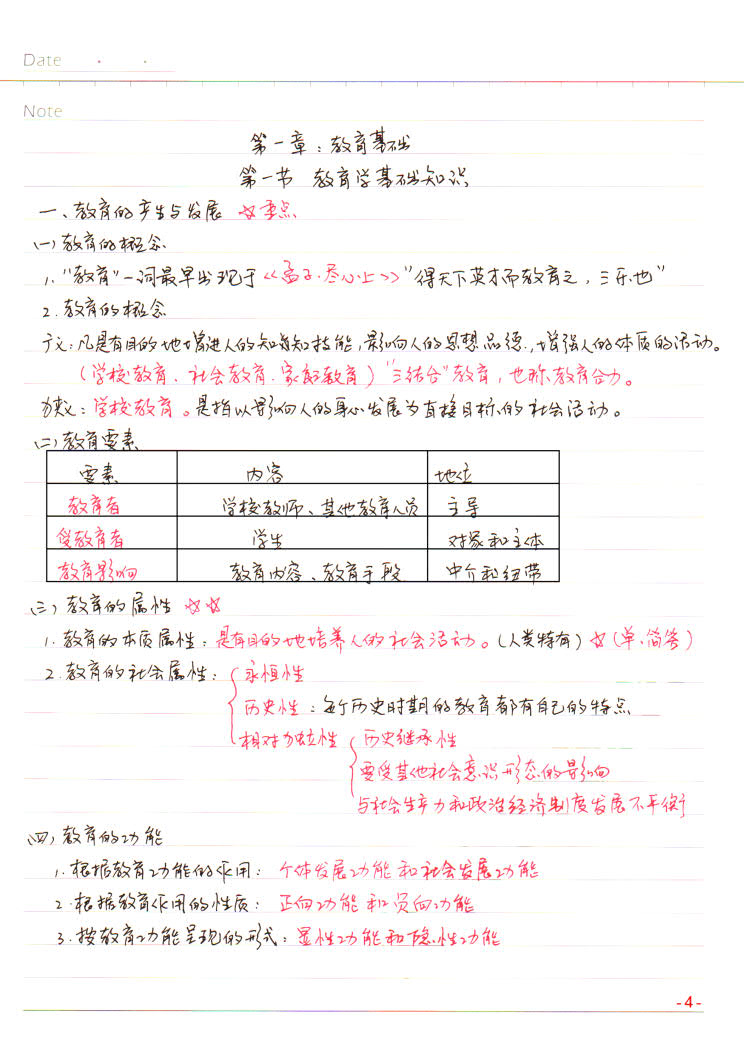 Date
Note
第一章：教育基础
第一节 教育学基础知识
一、教育的产生与发展 ☆重点
(一)教育的概念
1. "教育"一词最早出现于《孟子·尽心上》"得天下英才而教育之，三乐也"
2. 教育的概念
广义：凡是有目的地增进人的知识和技能，影响人的思想品德，增强人的体质的活动。
(学校教育、社会教育、家庭教育) "三结合"教育，也称教育合力。
狭义：学校教育。是指以影响人的身心发展为直接目标的社会活动。
(二)教育要素
要素 内容 地位
教育者 学校教师、其他教育人员 主导
受教育者 学生 对象和主体
教育影响 教育内容、教育手段 中介和纽带
(三)教育的属性 ☆☆
1. 教育的本质属性：是有目的地培养人的社会活动。(人类特有) ☆(单、简答)
2. 教育的社会属性：永恒性
历史性：每个历史时期的教育都有自己的特点
相对独立性 历史继承性
要受其他社会意识形态的影响
与社会生产力和政治经济制度发展不平衡
(四)教育的功能
1. 根据教育功能的作用：个体发展功能和社会发展功能
2. 根据教育作用的性质：正向功能和负向功能
3. 按教育功能呈现的形式：显性功能和隐性功能
-4-